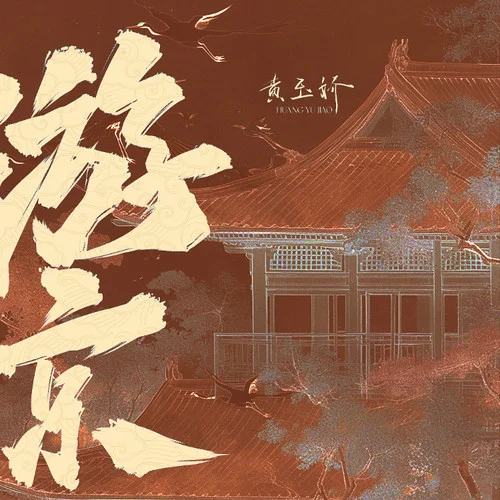 游京
黄玉娇
HUANG YU JIAO